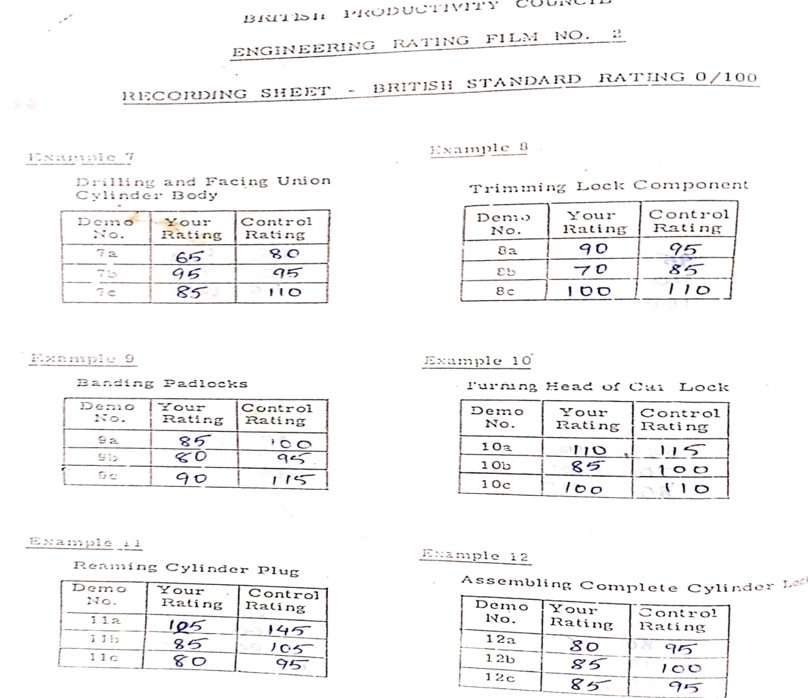 BRITISH PRODUCTIVITY COUNCIL
ENGINEERING RATING FILM NO. 2
RECORDING SHEET - BRITISH STANDARD RATING 0/100
Example 7
Drilling and Facing Union
Cylinder Body
Demo No. Your Rating Control Rating
7a 65 80
7b 95 95
7c 85 110
Example 8
Trimming Lock Component
Demo No. Your Rating Control Rating
8a 90 95
8b 70 85
8c 100 110
Example 9
Banding Padlocks
Demo No. Your Rating Control Rating
9a 85 100
9b 80 95
9c 90 115
Example 10
Turning Head of Cai Lock
Demo No. Your Rating Control Rating
10a 110 115
10b 85 100
10c 100 110
Example 11
Reaming Cylinder Plug
Demo No. Your Rating Control Rating
11a 105 145
11b 85 105
11c 80 95
Example 12
Assembling Complete Cylinder Lock
Demo No. Your Rating Control Rating
12a 80 95
12b 85 100
12c 85 95